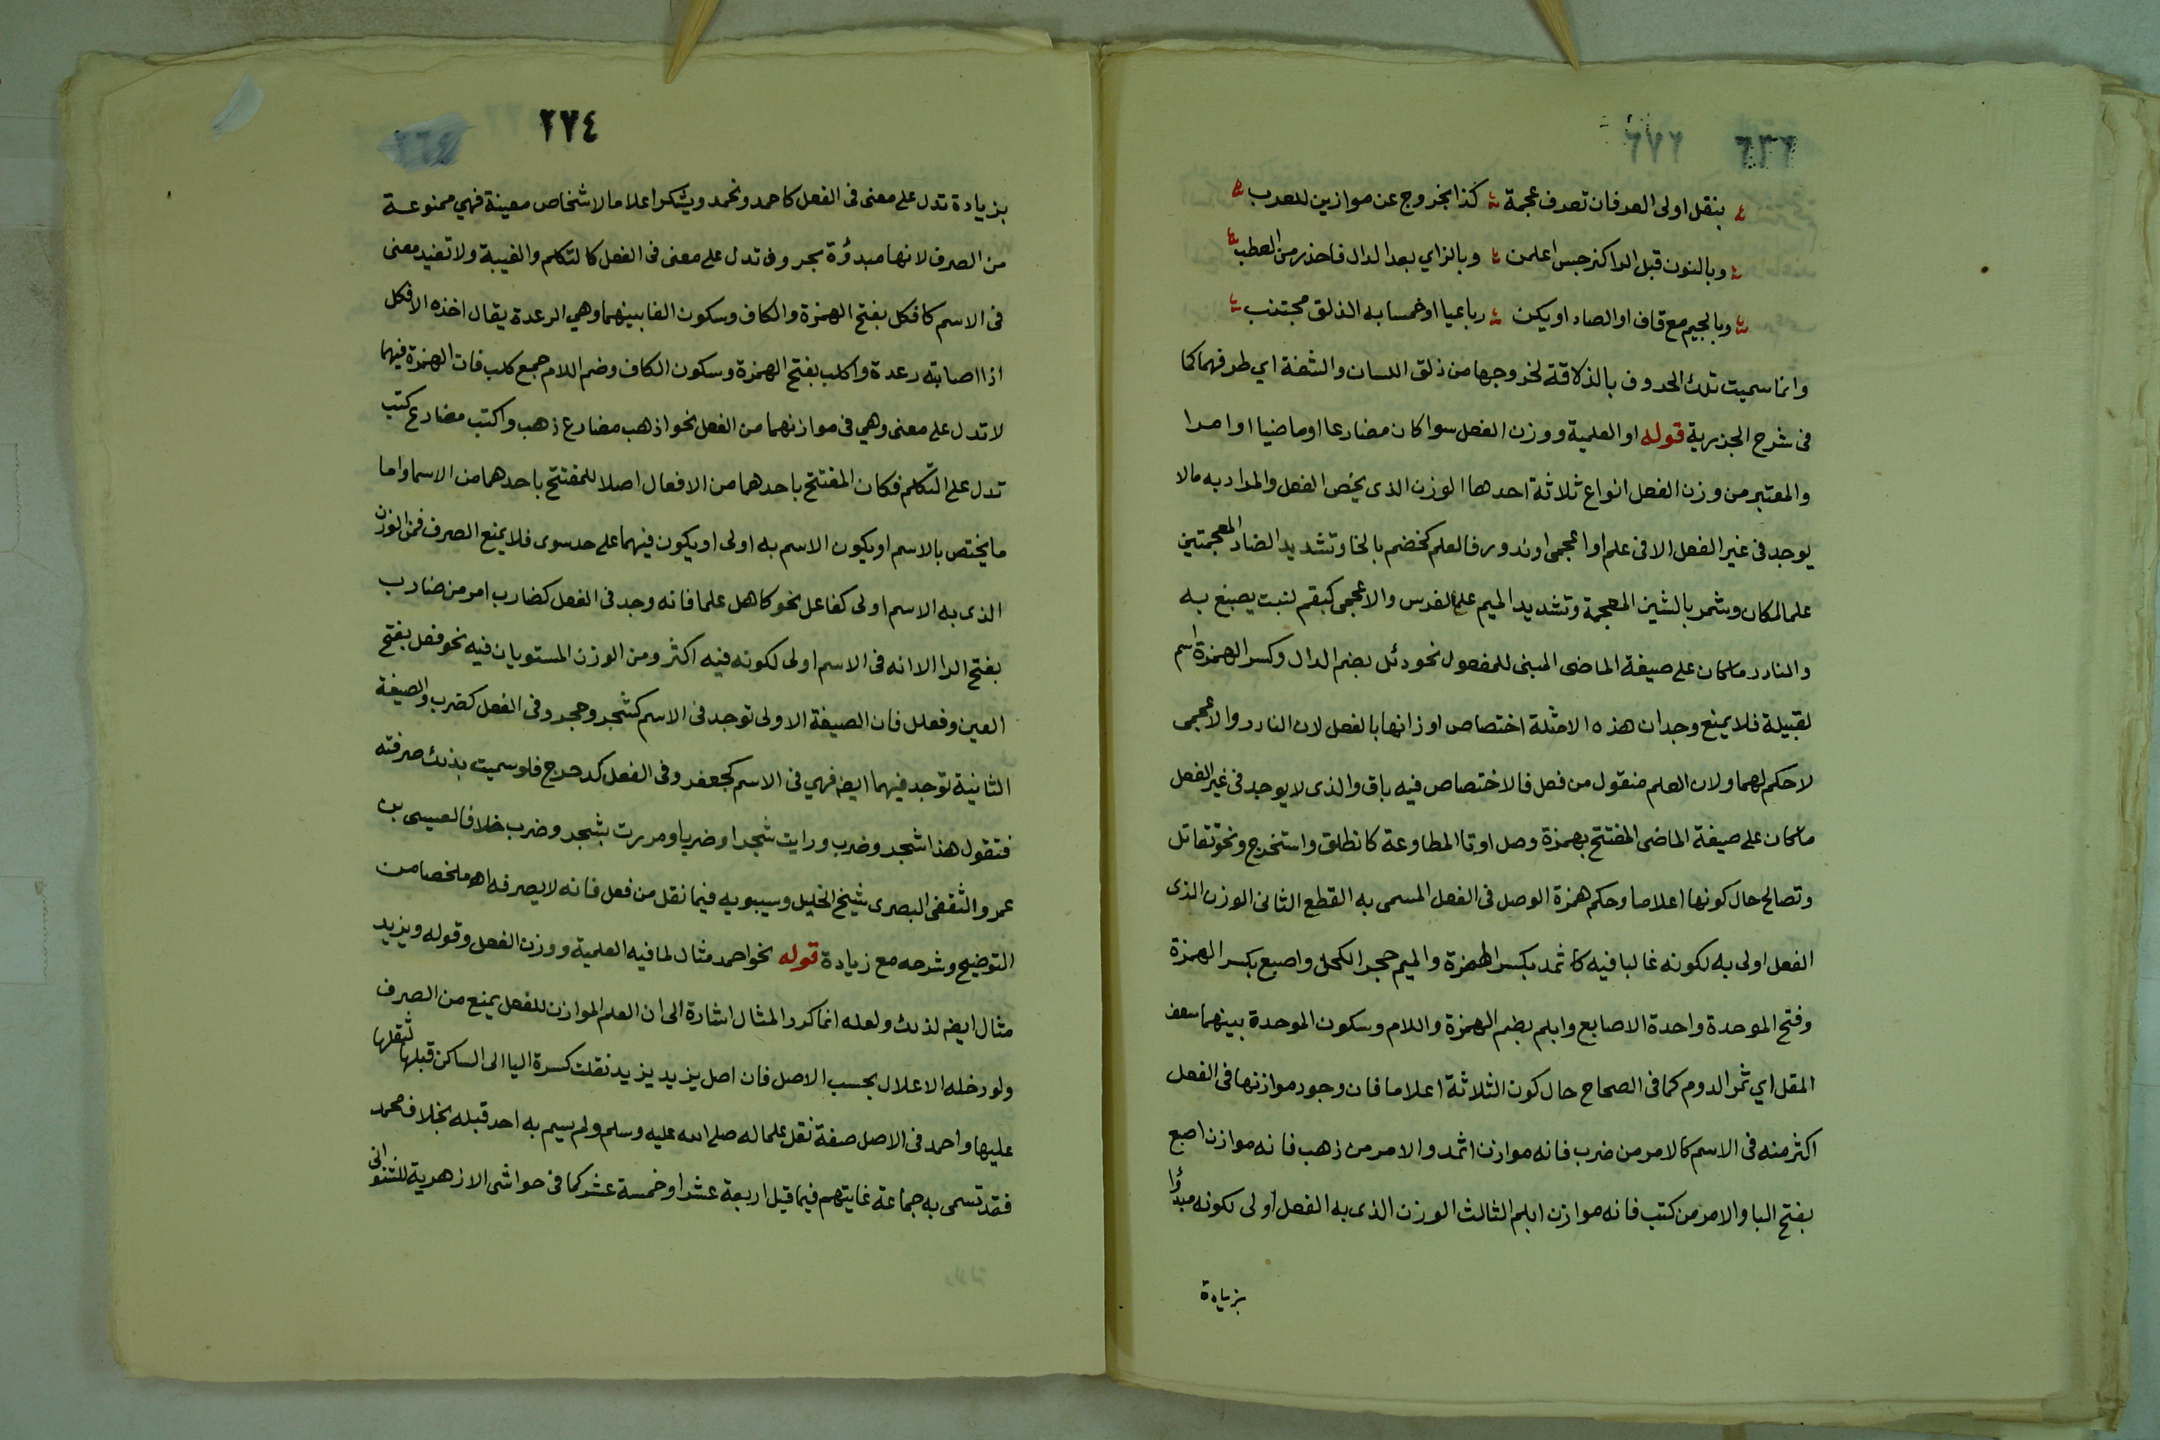 بنقل اولى العرفان تعرف عجمة كذا بخروج عن موازين للعرب
وبالنون قبل الرا كنرجس اعلمن وبالزاي بعد الدال فاحذر من العطب
وبالجيم مع قاف او الصاد او يكن رباعيا او خمسا به الذلق مجتنب
وانما سميت تلك الحروف بالذلاقة لخروجها من ذلق اللسان والشفة اي طرفهما كما
فى شرح الجزرية قوله او العلمية ووزن الفعل سوا كان مضارعا او ماضيا او امرا
والمعتبر من وزن الفعل انواع ثلاثة احدها الوزن الذى يخص الفعل والمراد به مالا
يوجد فى غير الفعل الا فى علم او اعجمى او ندور فالعلم كخضم بالخا وتشديد الضاد المعجمتين
علما لمكان وشمر بالشين المعجمة وتشديد الميم علما لفرس والاعجمى كبقم لنبت يصبغ به
والنادر ما كان على صيغة الماضى المبنى للمفعول نحو دئل بضم الدال وكسر الهمزة اسم
لقبيلة فلا يمنع وجدان هذه الامثلة اختصاص اوزانها بالفعل لان النادر والاعجمى
لا حكم لهما ولان العلم منقول من فعل فالاختصاص فيه باق والذى لا يوجد فى غير الفعل
ما كان على صيغة الماضى المفتتح بهمزة وصل او بتا المطاوعة كانطلق واستخرج ونحو تقاتل
وتصالح حال كونها اعلاما وحكم همزة الوصل فى الفعل المسمى به القطع الثانى الوزن الذى
الفعل اولى به لكونه غالبا فيه كاثمد بكسر الهمزة والميم حجر الكحل واصبع بكسر الهمزة
وفتح الموحدة واحدة الاصابع وابلم بضم الهمزة واللام وسكون الموحدة بينهما سعف
المقل اي ثمر الدوم كما فى الصحاح حال كون الثلاثة اعلاما فان وجود موازنها فى الفعل
اكثر منه فى الاسم كالامر من ضرب فانه موازن اثمد والامر من ذهب فانه موازن اصبع
بفتح البا والامر من كتب فانه موازن ابلم الثالث الوزن الذى به الفعل اولى لكونه مبدؤا
بزيادة
٢٧٤
بزيادة تدل على معنى فى الفعل كاحمد ونحمد ويشكر اعلاما لاشخاص معينة فهي ممنوعة
من الصرف لانها مبدؤة بحروف تدل على معنى فى الفعل كالتكلم والغيبة ولا تفيد معنى
فى الاسم كافكل بفتح الهمزة والكاف وسكون الفا بينهما وهي الرعدة يقال اخذه الافكل
اذا اصابته رعدة واكلب بفتح الهمزة وسكون الكاف وضم اللام جمع كلب فان الهمزة فيهما
لا تدل على معنى وهي فى موازنهما من الفعل نحو اذهب مضارع ذهب واكتب مضارع كتب
تدل على التكلم فكان المفتتح باحدهما من الافعال اصلا للمفتتح باحدهما من الاسما واما
ما يختص بالاسم او يكون الاسم به اولى او يكون فيهما على حد سوى فلا يمنع الصرف فمن الوزن
الذى به الاسم اولى كفاعل نحو كاهل علما فانه وجد فى الفعل كضارب امر من ضارب
بفتح الرا الا انه فى الاسم اولى لكونه فيه اكثر ومن الوزن المستويان فيه نحو فعل بفتح
العين وفعلل فان الصيغة الاولى توجد فى الاسم كشجر وحجر وفى الفعل كضرب والصيغة
الثانية توجد فيهما ايضا فهي فى الاسم كجعفر وفى الفعل كدحرج فلو سميت بذلك صرفته
فتقول هذا شجر وضرب ورايت شجرا وضربا ومررت بشجر وضرب خلافا لعيسى بن
عمرو الثقفى البصرى شيخ الخليل وسيبويه فيما نقل من فعل فانه لا يصرفه اهـ ملخصا من
التوضيح وشرحه مع زيادة قوله نحو احمد مثال لما فيه العلمية ووزن الفعل وقوله ويزيد
مثال ايضا لذلك ولعله انما كرر المثال اشارة الى ان العلم الموازن للفعل يمنع من الصرف
ولو دخله الاعلال بحسب الاصل فان اصل يزيد يزيد نقلت كسرة اليا الى الساكن قبلها لثقلها
عليها واحمد فى الاصل صفة نقل علما له صلى الله عليه وسلم ولم يسم به احد قبله بخلاف محمد
فقد تسمى به جماعة غايتهم فيما قيل اربعة عشر او خمسة عشر كما فى حواشى الازهرية للشنوانى